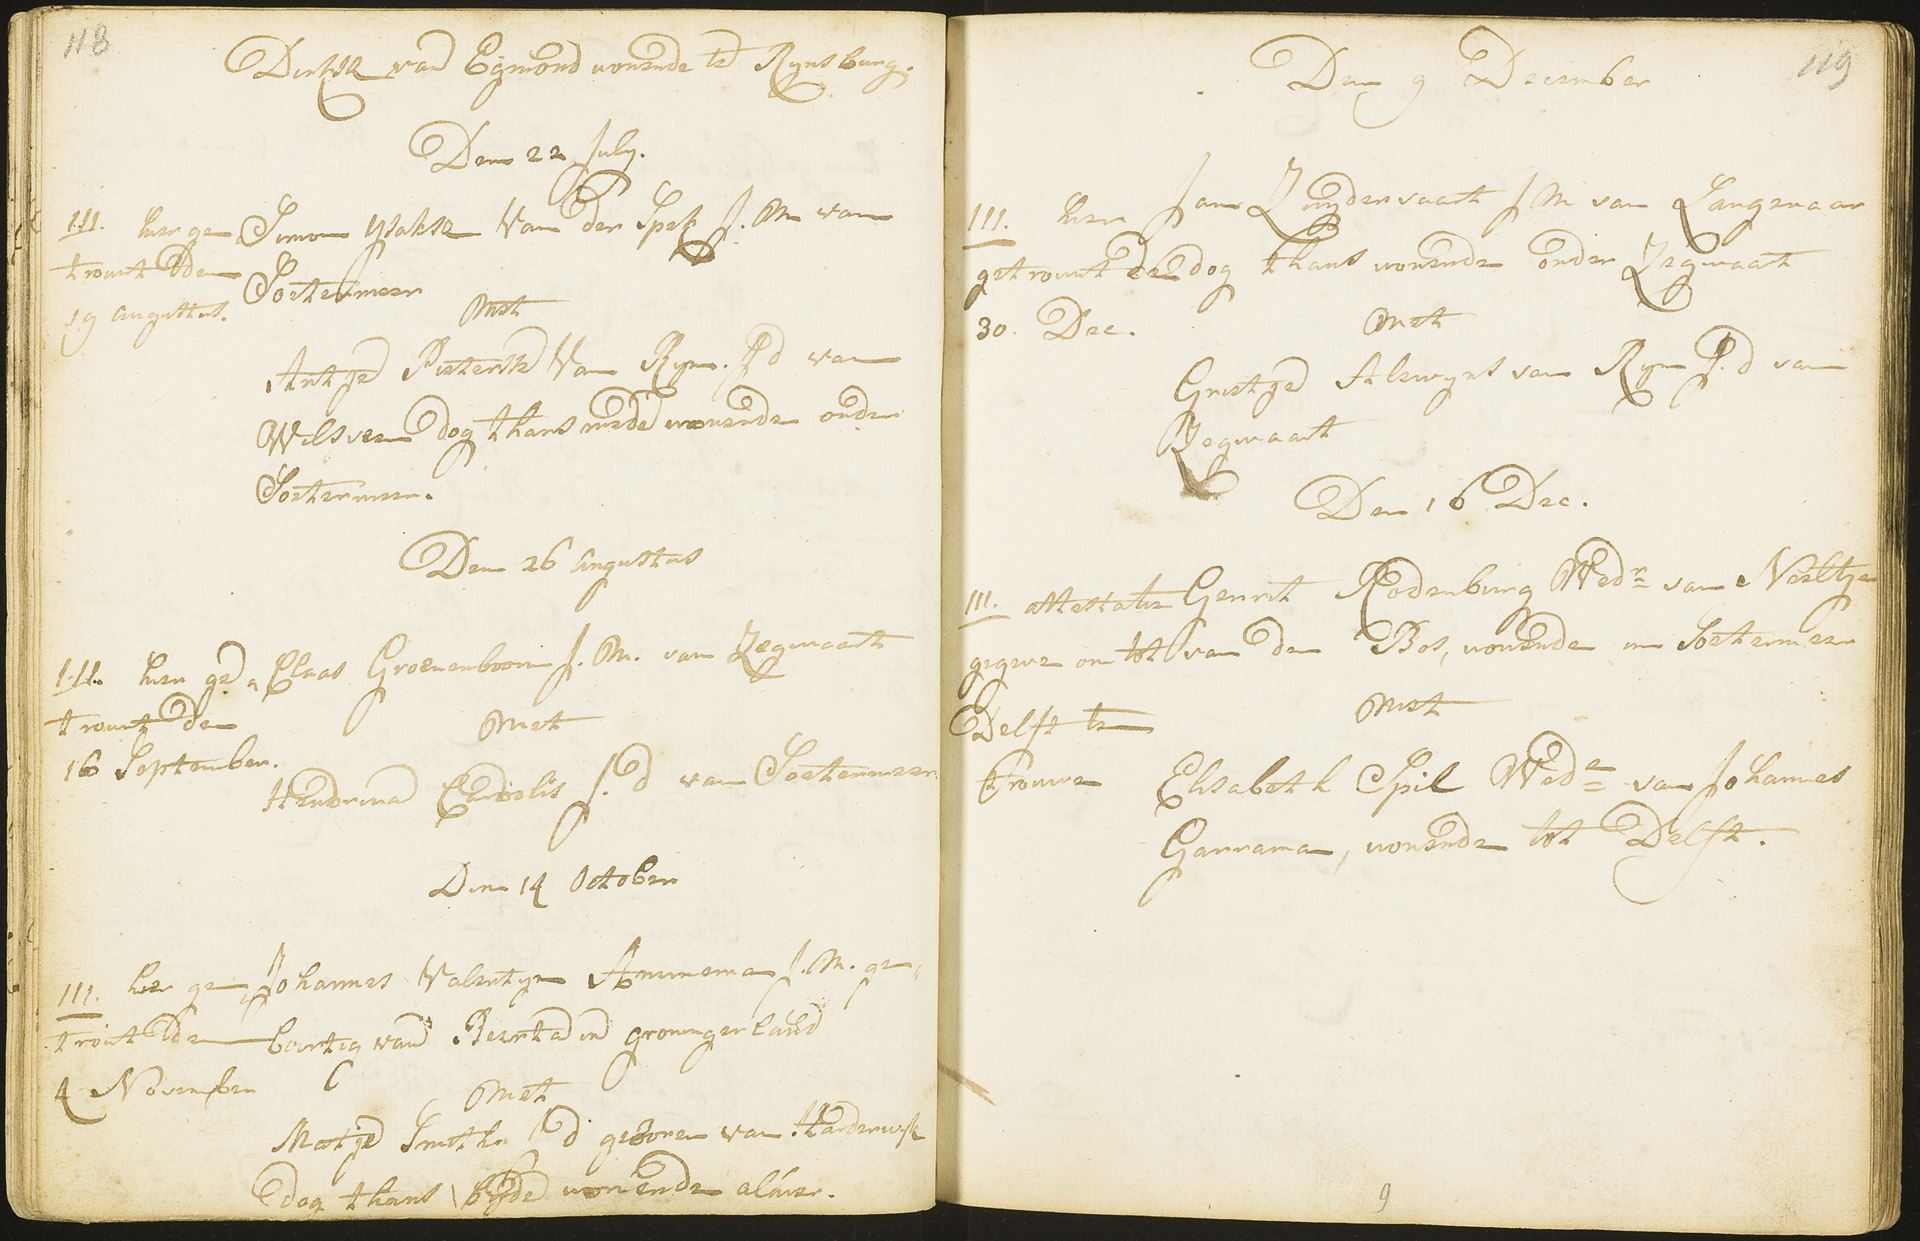 118
Dirkje van Egmond wonende te Rynsburg.
Den 22 July.
111. hier ge Simon Ysakse Van der Spek J. M van
trouwt den Soetermeer
19 augustus. Met
Antje Pieterse Van Ryn. J d van
Wilsveen dog thans mede wonende onder
Soetermeer.
Den 26 augustus
111. hier ge Claas Groenenboom J. M. van Zegwaart
trouwt den Met
16 September. Hendrina J. d van Soetermeer
Den 14 October
111. hier ge Johannes Valentyn Ammema J. M. ge
trout den boortig van Beerta in groningerland
4 November Met
Metje Smith J d geboren van Harderwyk
dog thans byde wonende alhier.
119
Den 9 December
111. hier Jan Zuydervaart J M van Langeraar
getrouwt de dog thans wonende onder Zegwaart
30. Dec. Met
Grietje Alewyns van Ryn J. d van
Zegwaart
Den 16 Dec.
111. attestatie Gerrit Rodenburg Wedr van Neeltje
gegeve om tot van den Bos, wonende in Soetermeer
Delft te Met
trouwe Elisabeth Spil Wede van Johannes
Garrama, wonende tot Delft.
9